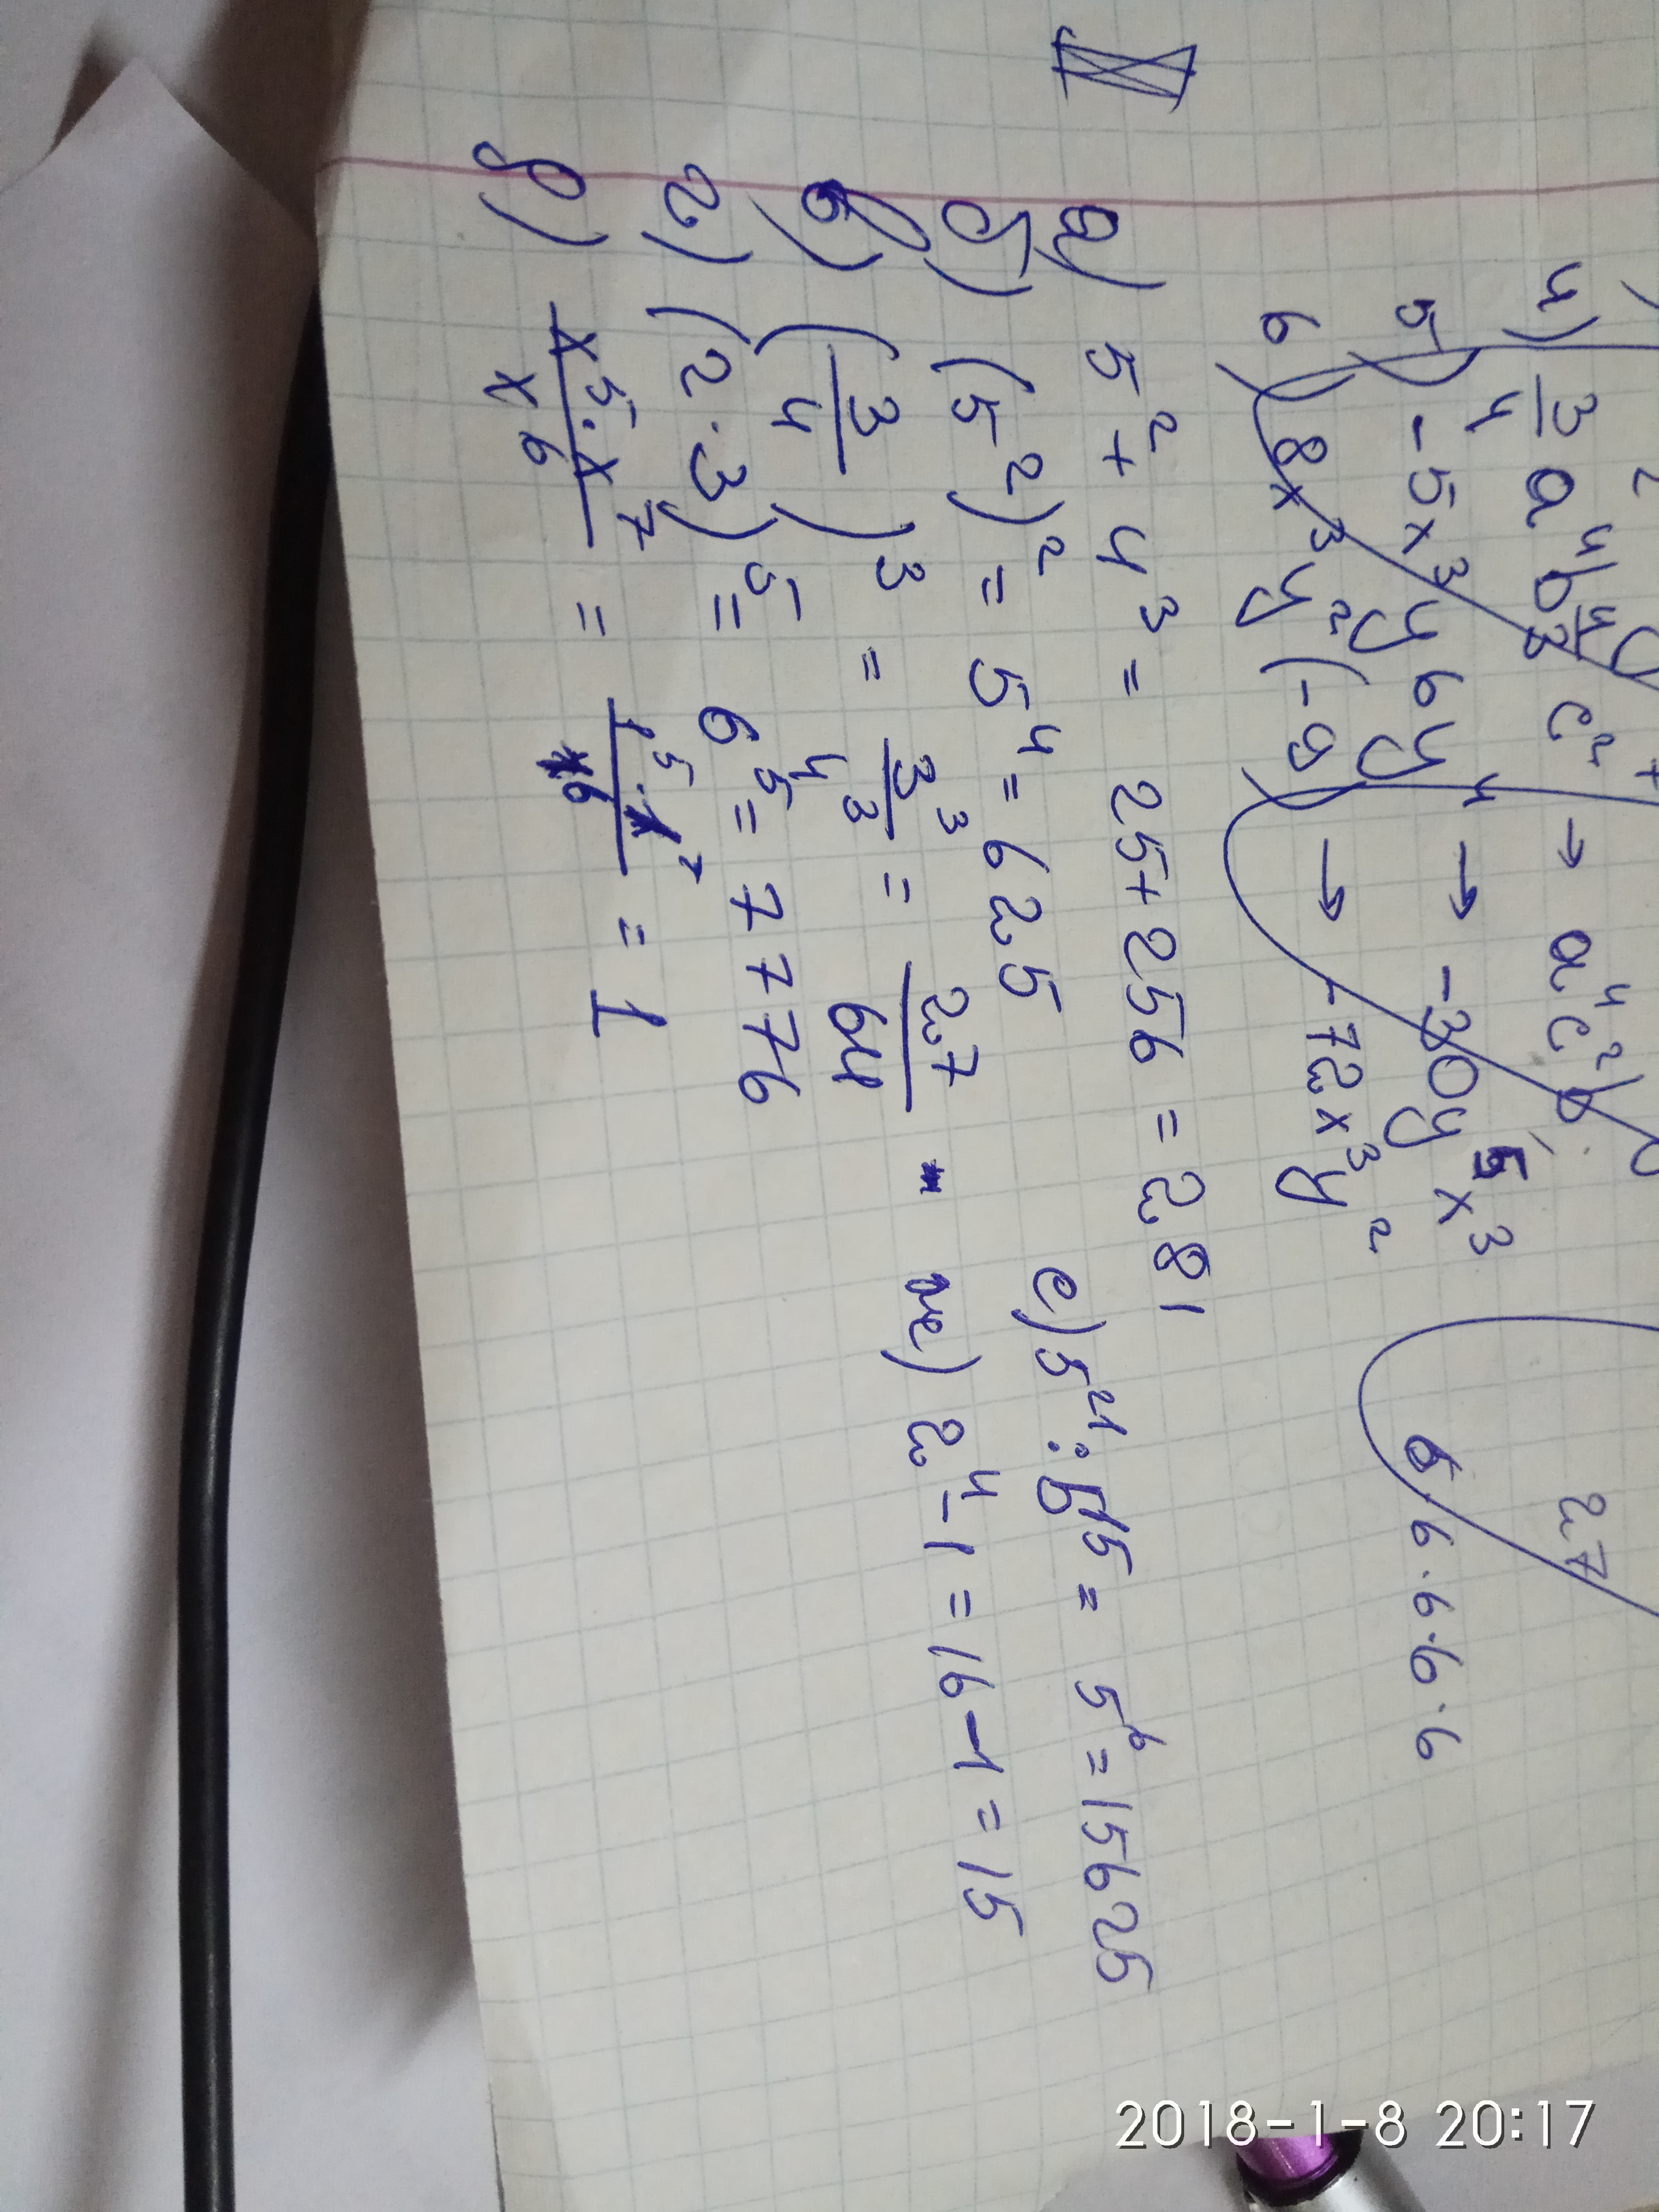 4) 3/4 a⁴b⁴/3 c² → a⁴c²b
5) -5x³y6y⁴ → -30y⁵x³
6) 8x³y²(-9) → -72x³y²
27
6·6·6·6·6
III
а) 5² + 4³ = 25 + 256 = 281
б) (5²)² = 5⁴ = 625
в) (3/4)³ = 3³/4³ = 27/64
г) (2·3)⁵ = 6⁵ = 7776
д) x⁵·x⁷/x⁶ = 1⁵·1⁷/1⁶ = 1
е) 5²¹ : 5¹⁵ = 5⁶ = 15625
ж) 2⁴ - 1 = 16 - 1 = 15
2018-1-8 20:17